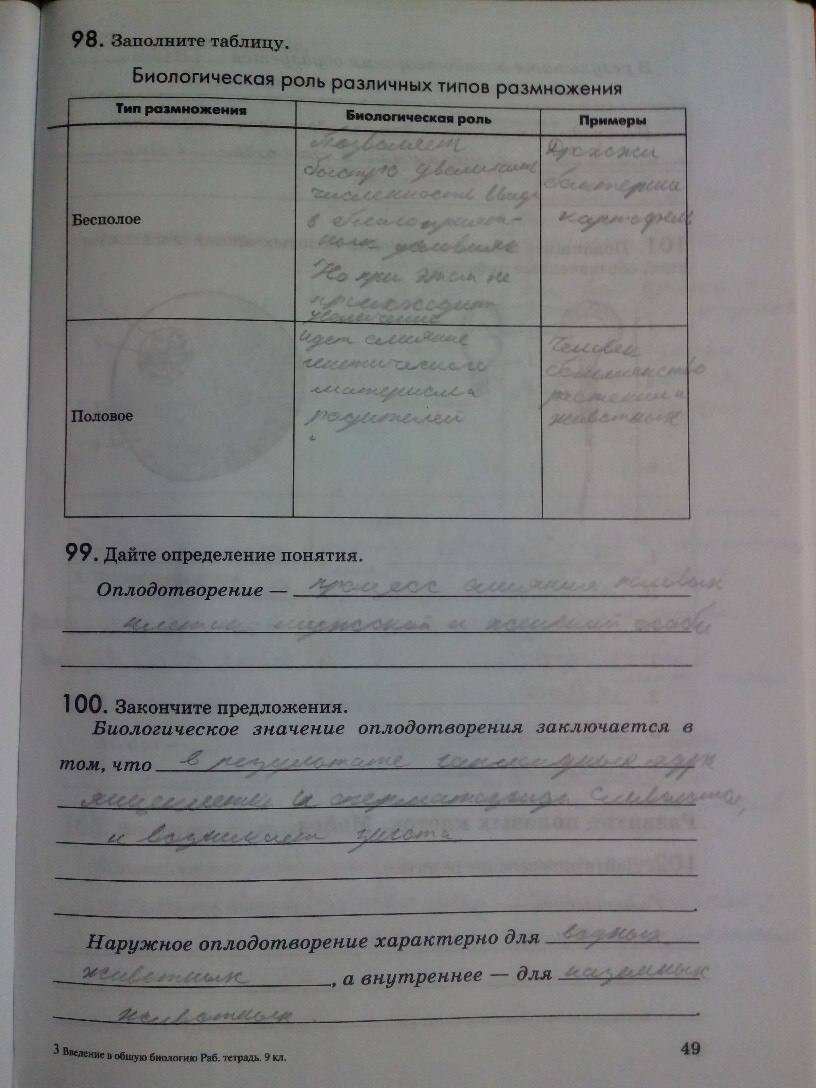 98. Заполните таблицу.
Биологическая роль различных типов размножения
Тип размножения Биологическая роль Примеры
Бесполое
Позволяет
быстро увеличить
численность вида
в благоприят-
ных условиях
Но при этом не
происходит
увеличение
Дрожжи
бактерии
картофель
Половое
идет слияние
генетического
материала
родителей
Человек
большинство
растений и
животных
99. Дайте определение понятия.
Оплодотворение — процесс слияния половых
клеток мужской и женской особи
100. Закончите предложения.
Биологическое значение оплодотворения заключается в
том, что в результате гаплоидные ядра
яйцеклетки и сперматозоида сливаются,
и возникает зигота
Наружное оплодотворение характерно для водных
животных, а внутреннее — для наземных
животных.
3 Введение в общую биологию Раб. тетрадь. 9 кл.
49